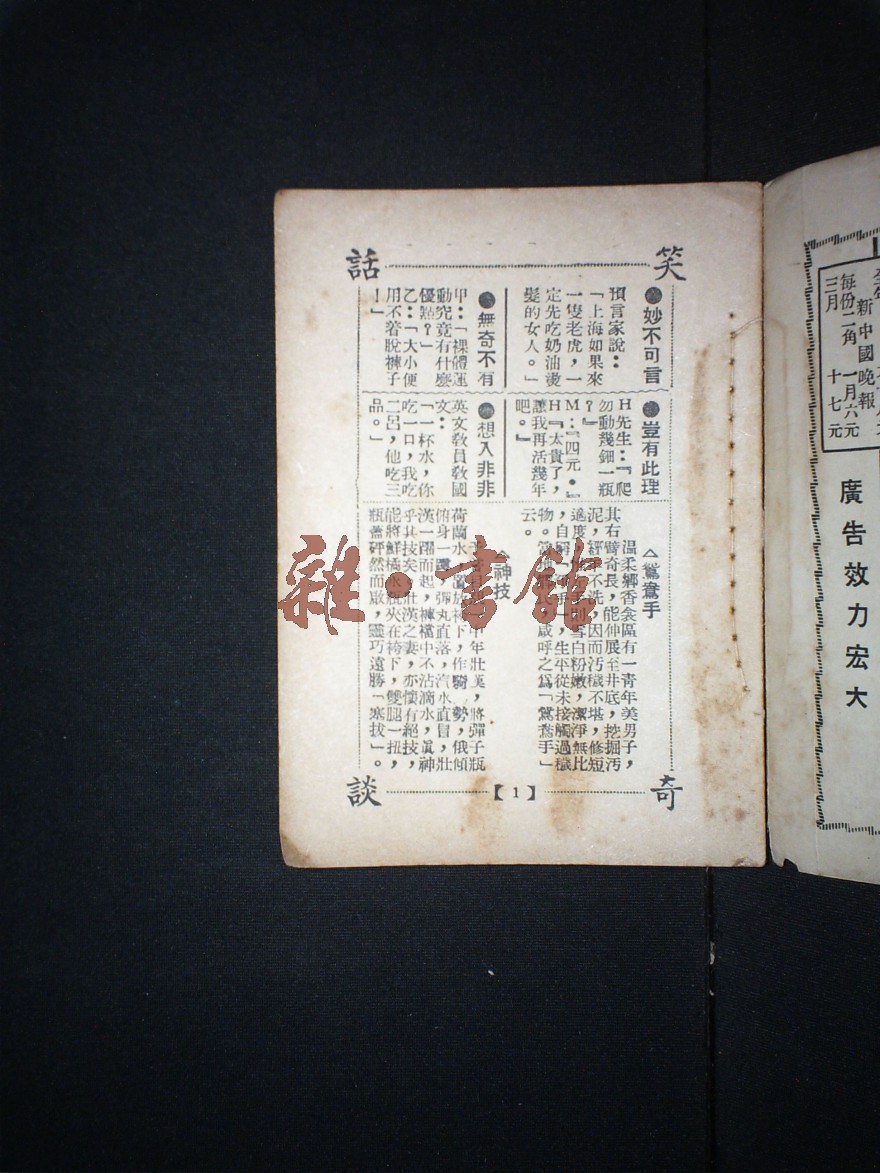 笑話
●妙不可言
預言家說：
「上海如果來
一隻老虎，一
定先吃奶油燙
髮的女人。」
●無奇不有
甲：「裸體運
動究竟有什麼
優點？」
乙：「大小便
用不着脫褲子
！」
●豈有此理
H先生：『爬
勿動幾鈿一瓶
？』
M：『四元。』
H『太貴了，
讓我再活幾年
吧。』
●想入非非
英文教員教國
文：
「一杯水，你
吃一口，我吃
二呂，他吃三
品。」
奇談
△鴛鴦手
溫柔鄉香衾區有一青年美男子，
其右臂奇長，能伸展至井底，挖掘汚
泥，經年不洗，因而汚穢不堪，修短
適度，雪白粉嫩，潔淨無比
，自，生平從未接觸過穢
物。咸呼之爲「鴛鴦手」
云。
△神技
中年壯漢，將彈子瓶
荷蘭水，置放袴下，作騎勢，俄傾
俯身一，彈丸直落，汽水直冒，壯
漢一躍而起，褲襠中不沾滴水，眞神
乎其技矣。壯漢之妻，亦懷有絕技，
能將鮮橘水瓶夾在袴下，雙腿一扭，
瓶蓋砰然而啟，靈巧遠勝「塞拔」。
【1】
雜·書館
新中國晚報
每份二角 一月六元
三月 十七元
廣告效力宏大